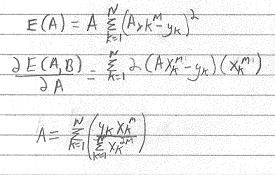 E(A) = A Σ_{k=1}^{N} (A x_k^m - y_k)^2
∂E(A,B)/∂A = Σ_{k=1}^{N} 2(A x_k^m - y_k)(x_k^m)
A = Σ_{k=1}^{N} (y_k x_k^m / Σ_{k=1}^{N} x_k^{2m})